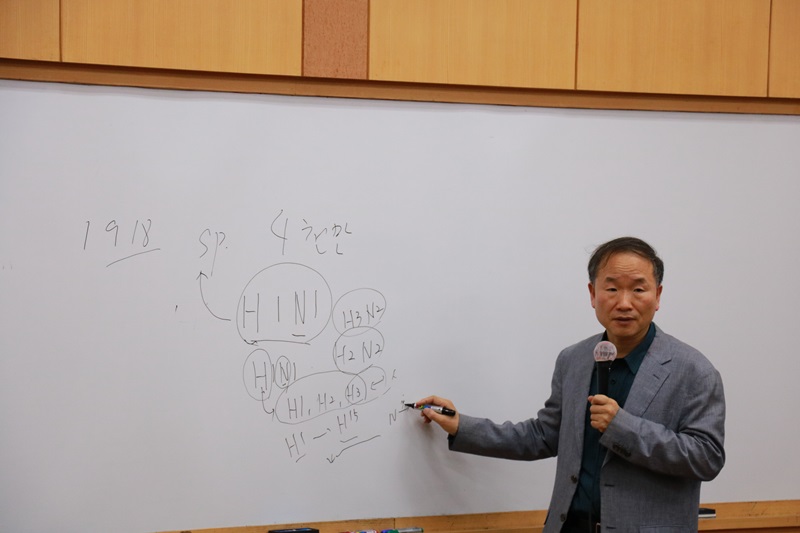 1918 sp. 4천만
H1N1
H3N2
H2N2
H N1
H1, H2, H3
H1 ~ H15
N